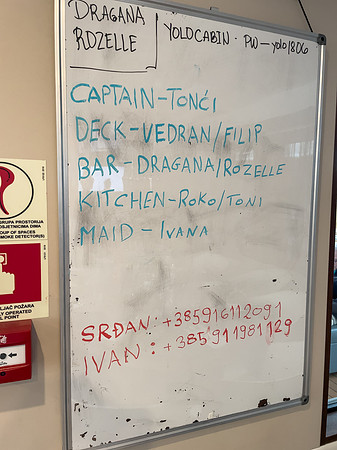 DRAGANA
ROZELLE
YOLOCABIN - PW - yolo1806
CAPTAIN - TONĆI
DECK - VEDRAN/FILIP
BAR - DRAGANA/ROZELLE
KITCHEN - ROKO/TONI
MAID - IVANA
SRĐAN: +385916112091
IVAN: +385911981129
GRUPA PROSTORIJA
OUP OF SPACES
MOKE DETECTOR(S)
LJAČ POŽARA
LY OPERATED
L POINT